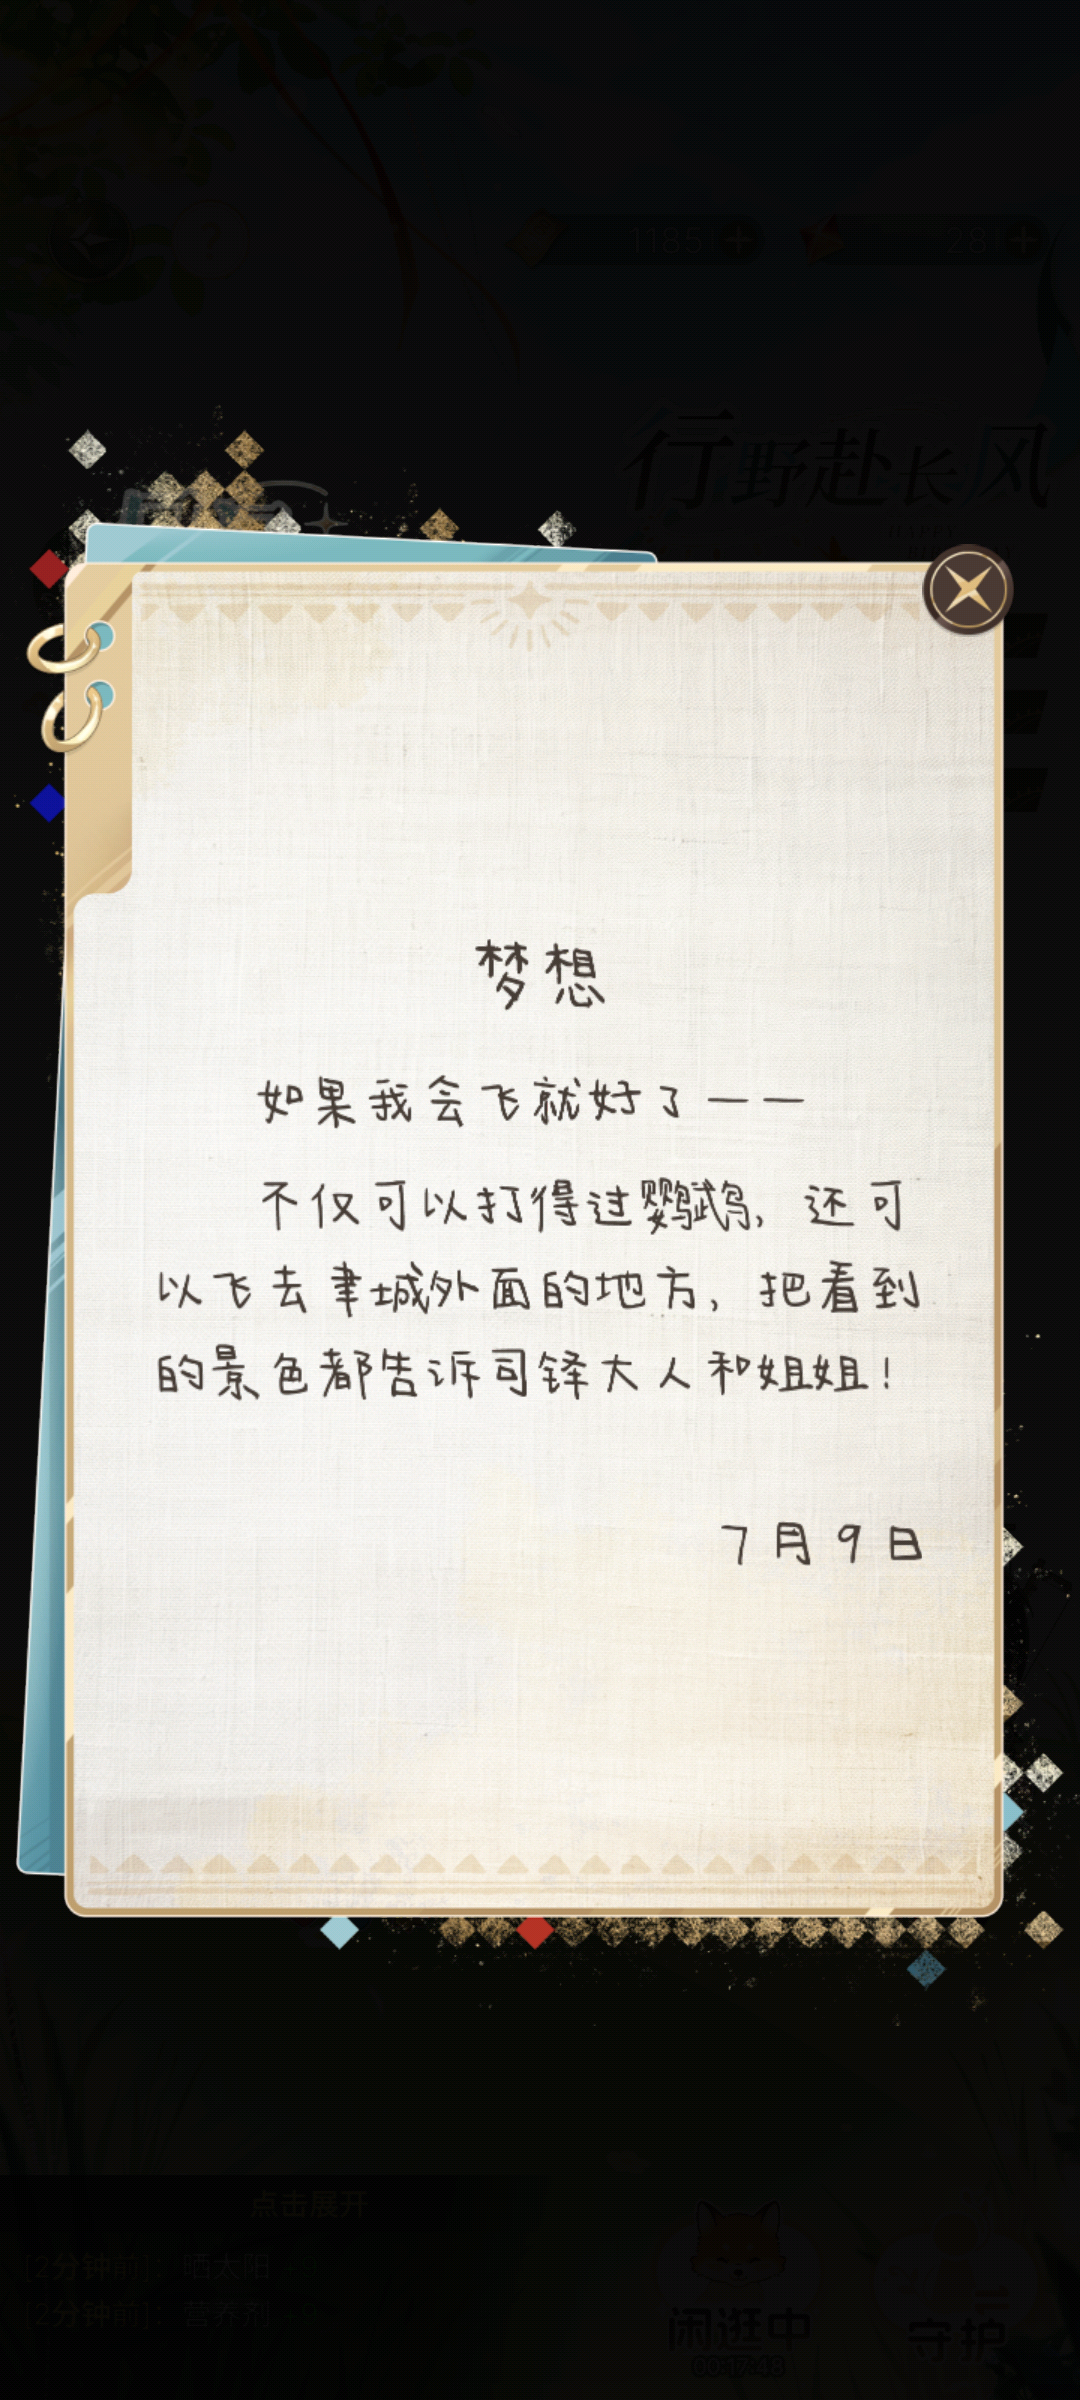 1185
28
行野赴长风
梦想
如果我会飞就好了——
不仅可以打得过鹦鹉，还可
以飞去聿城外面的地方，把看到
的景色都告诉司铎大人和姐姐！
7月9日
点击展开
[2分钟前]：晒太阳 +9
[2分钟前]：营养剂 +9
闲逛中
守护
00:17:48